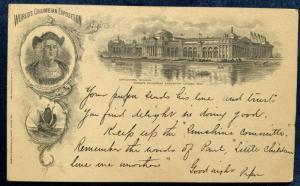 WORLD'S COLUMBIAN EXPOSITION
Your papa sends his love, and trust
you find delight in doing good.
Keep up the "Sunshine Committee".
Remember the words of Paul "Little children
love one another"
Good night Papa